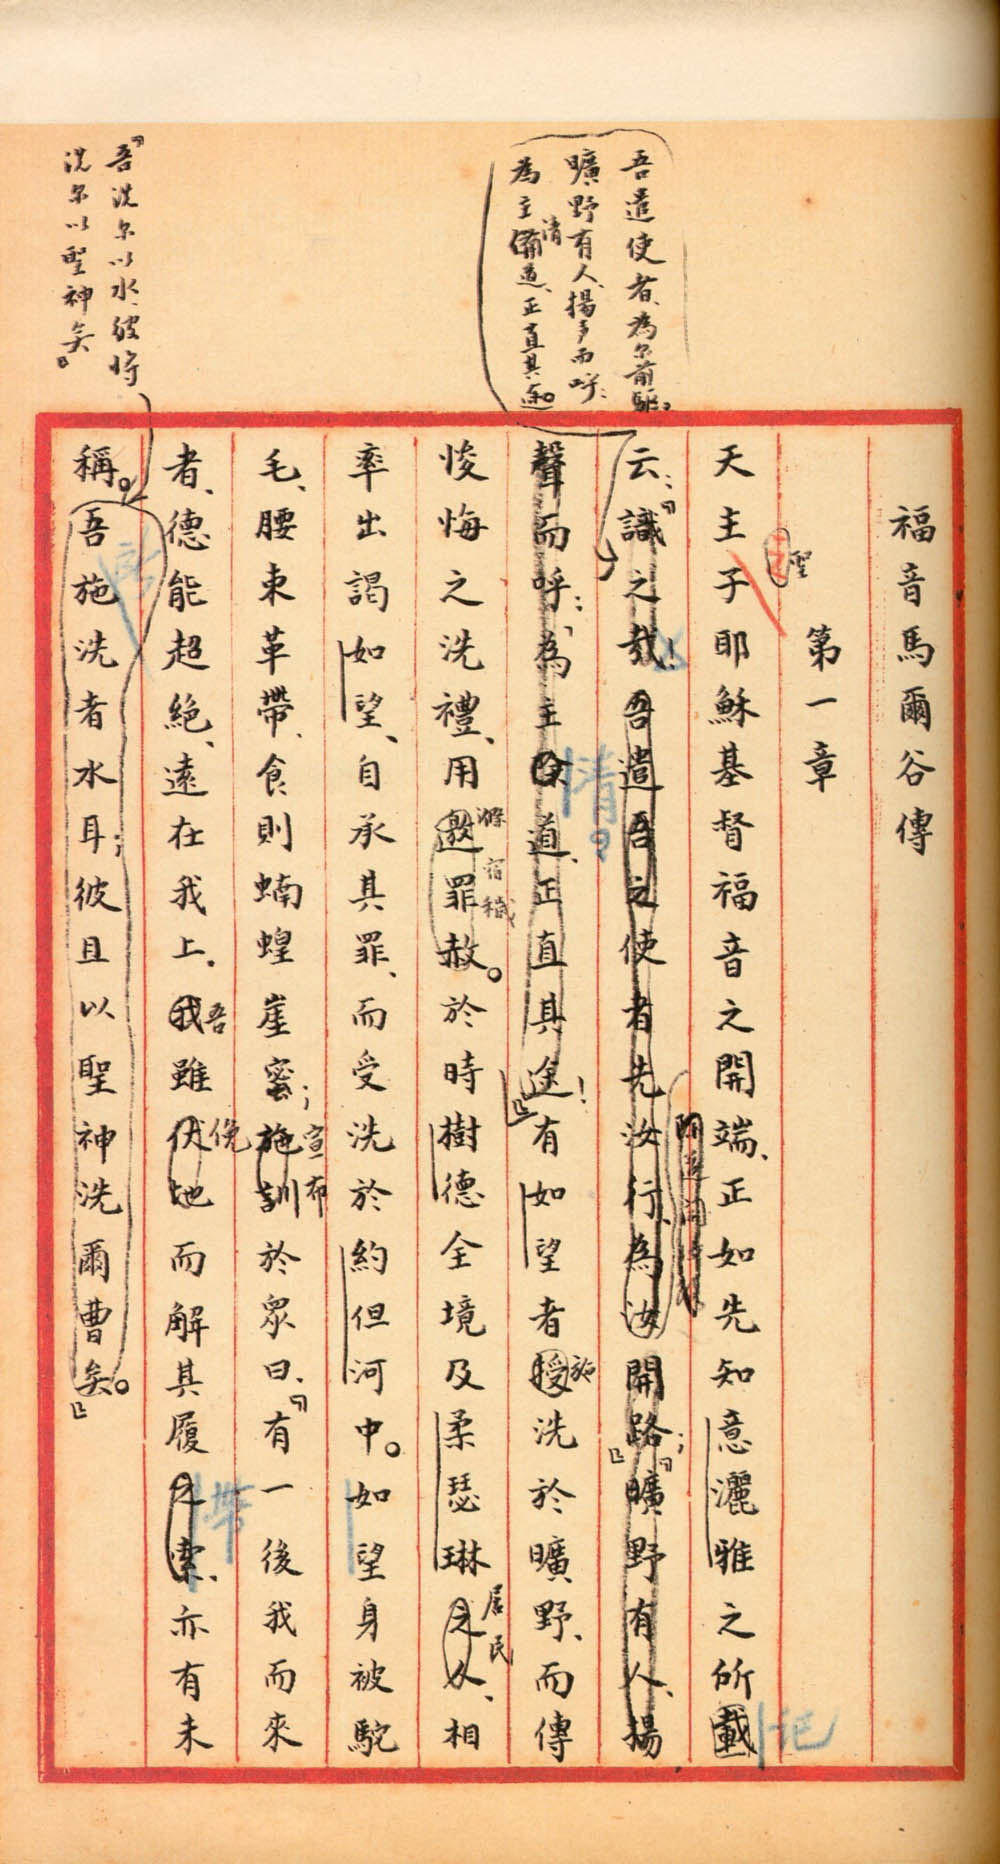 吾遣使者、為尔前驅。
曠野有人、揚声而呼：
為主清道、正直其途。
『吾洗尔以水、彼將
洗尔以聖神矣。』
福音馬爾谷傳
第一章
聖
天主子耶穌基督福音之開端、正如先知意灑雅之所載
記
云：『識之哉！吾遣吾之使者先汝行、為汝開路；』『曠野有人、揚
聲而呼：「為主除道、正直其途！」』有如望者授洗於曠野、而傳
清？
施
悛悔之洗禮、用邀罪赦。於時樹德全境及柔瑟琳之人、相
滌宿穢
居民
率出謁如望、自承其罪、而受洗於約但河中。如望身被駝
毛、腰束革帶、食則蝻蝗崖蜜；施訓於眾曰、『有一後我而來
宣布
者、德能超絕、遠在我上。我雖伏地而解其履之索、亦有未
吾
俛
帶
稱。吾施洗者水耳；彼且以聖神洗爾曹矣。』